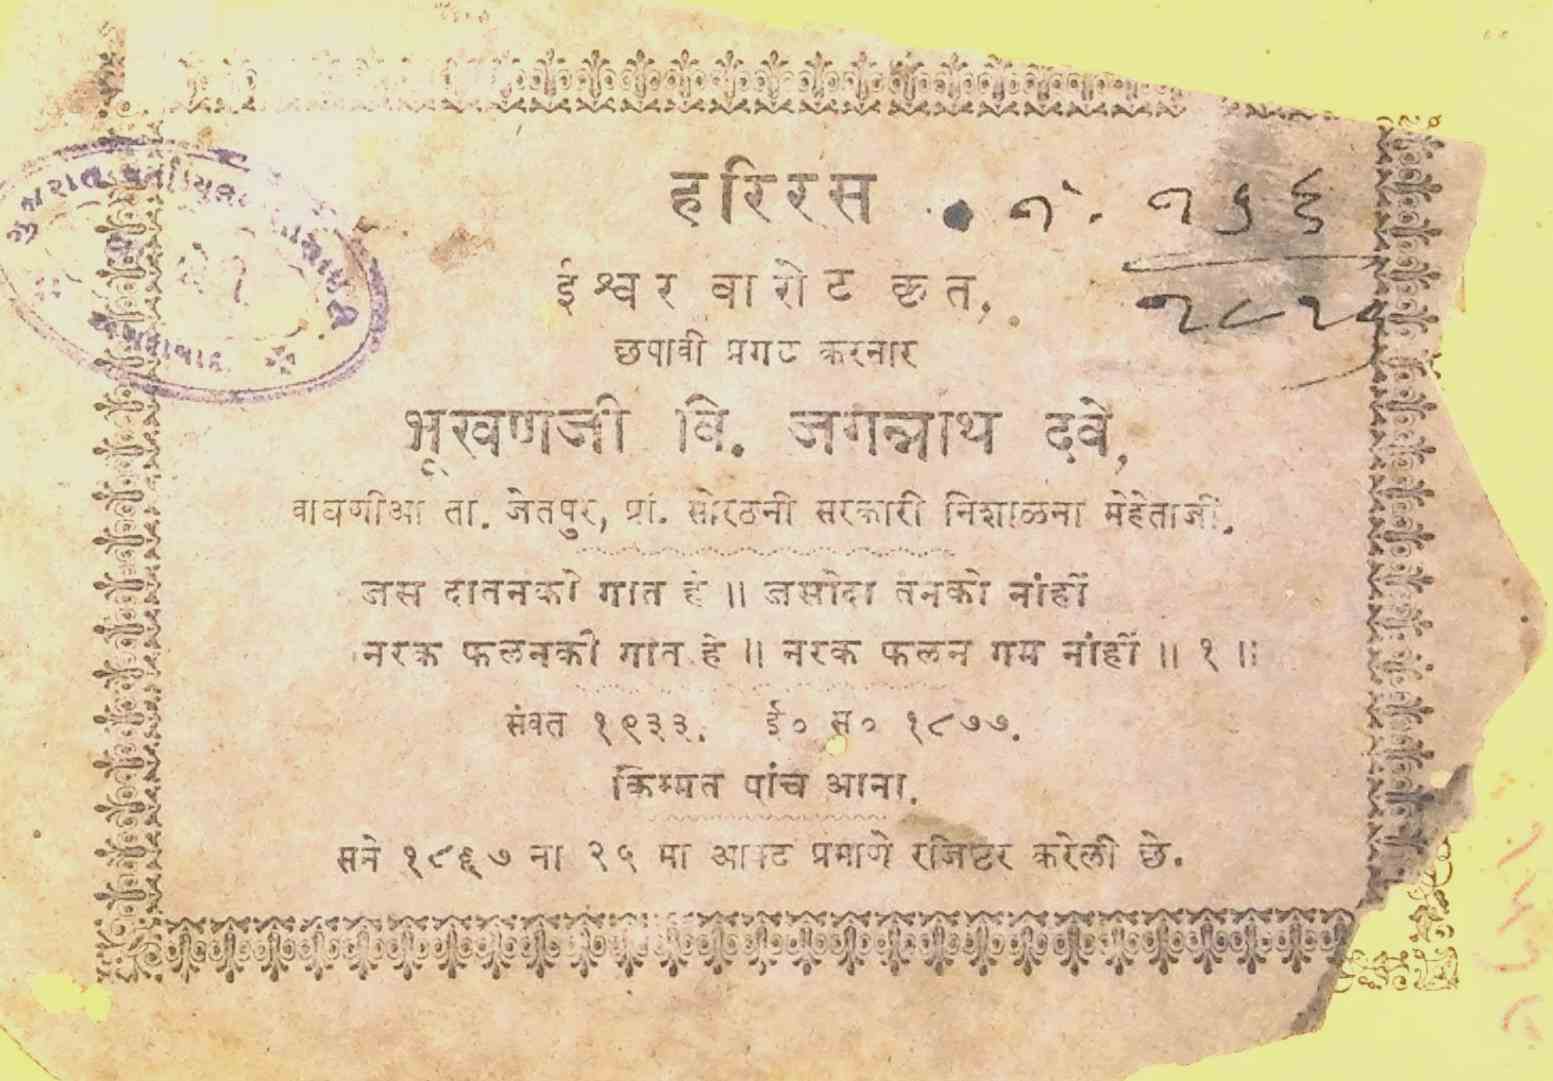 हरिरस
ईश्वर बारोट कृत,
छपावी प्रगट करनार
भूखणजी वि. जगन्नाथ दवे,
वावणीआ ता. जेतपुर, प्रां. सोरठनी सरकारी निशाळना मेहेताजी.
जस दातनको गात हे ॥ जसोदा तनको नांहीं
नरक फलनकी गात हे ॥ नरक फलन गम नांहीं ॥ १ ॥
संवत १९३३. ई० स० १८७७.
किम्मत पांच आना.
सने १८६७ ना २५ मा आक्ट प्रमाणे रजिष्टर करेली छे.